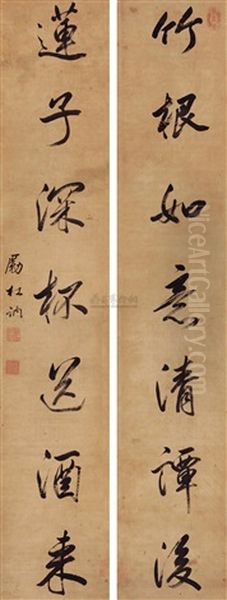 竹根如意清譚後
蓮子深杯送酒来
勵杜訥